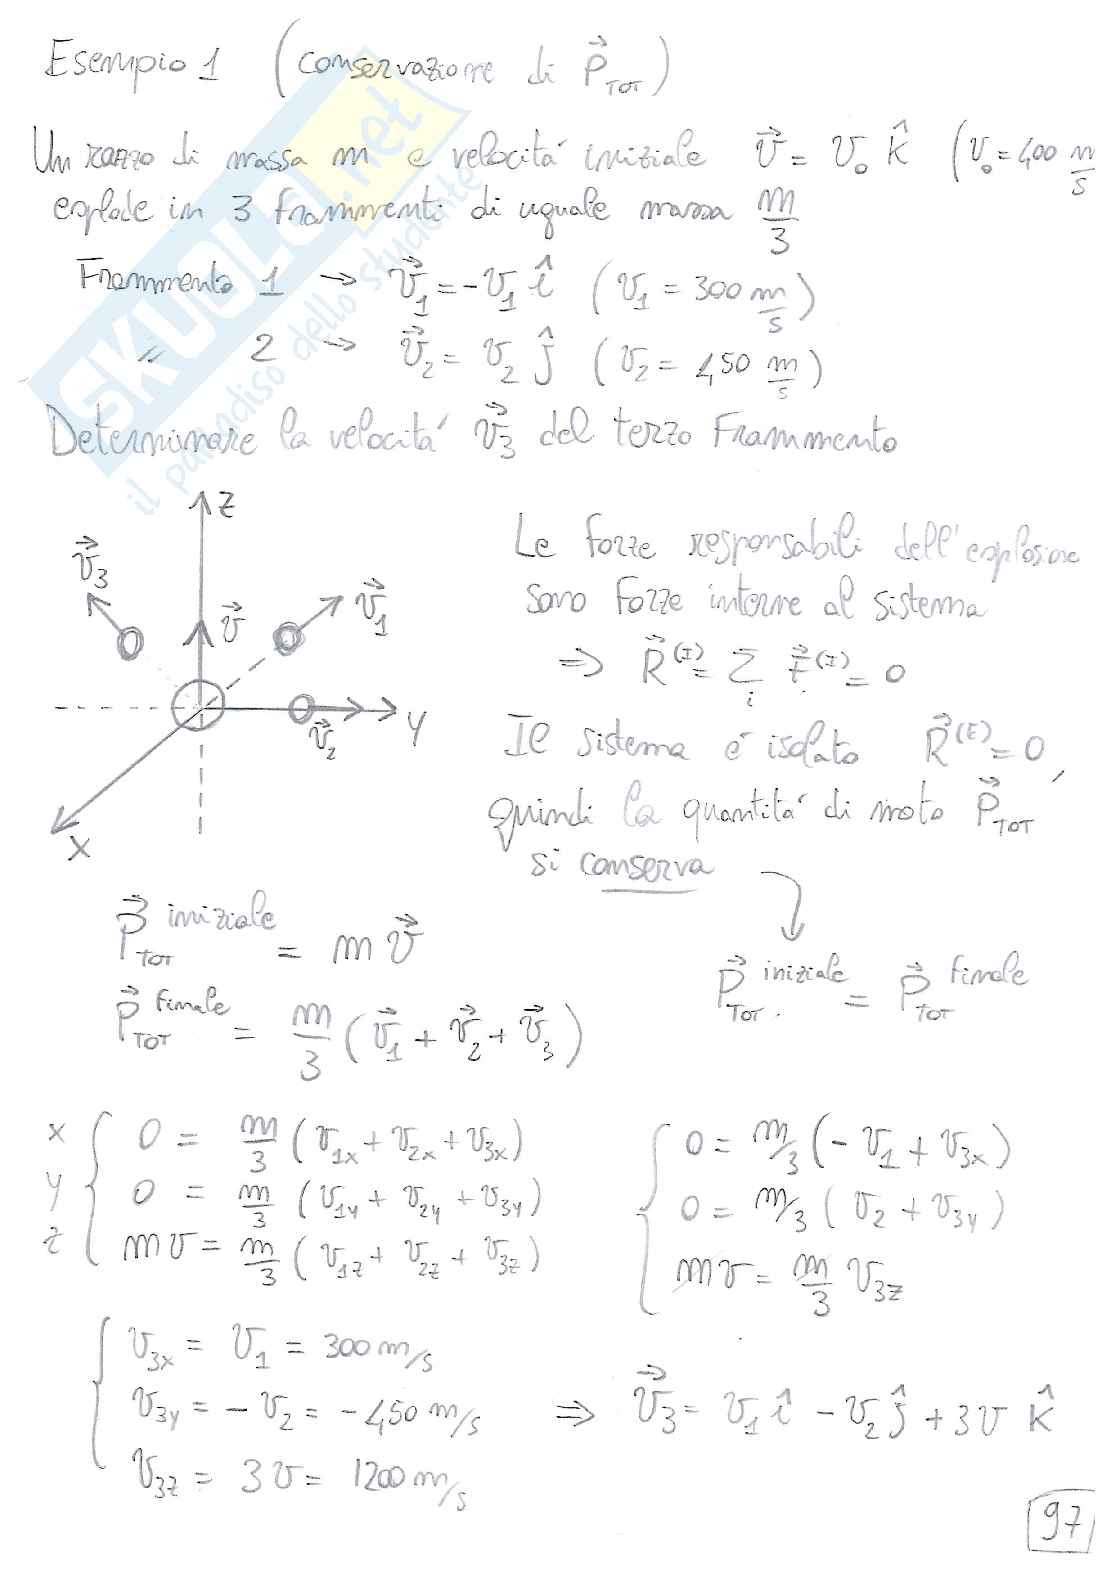 Esempio 1 (conservazione di P⃗TOT)
Un razzo di massa m e velocitá iniziale v⃗ = v₀ k̂ (v₀ = 400 m/s
esplode in 3 frammenti di uguale massa m/3
Frammento 1 → v⃗₁ = -v₁ î (v₁ = 300 m/s)
〃 2 → v⃗₂ = v₂ ĵ (v₂ = 450 m/s)
Determinare la velocitá v⃗₃ del terzo Frammento
z
v⃗₃
v⃗
v⃗₁
v⃗₂
y
x
Le Forze responsabili dell'esplosione
sono Forze interne al sistema
⇒ R⃗⁽ᴵ⁾ = Σᵢ F⃗⁽ᴵ⁾ = 0
Il sistema é isolato R⃗⁽ᴱ⁾ = 0,
quindi la quantitá di moto P⃗TOT
si conserva
P⃗TOT iniziale = m v⃗
P⃗TOT iniziale = P⃗TOT Finale
P⃗TOT Finale = m/3 (v⃗₁ + v⃗₂ + v⃗₃)
x { 0 = m/3 (v₁x + v₂x + v₃x)
y { 0 = m/3 (v₁y + v₂y + v₃y)
z { m v = m/3 (v₁z + v₂z + v₃z)
{ 0 = m/3 (- v₁ + v₃x)
0 = m/3 (v₂ + v₃y)
m v = m/3 v₃z
{ v₃x = v₁ = 300 m/s
v₃y = - v₂ = -450 m/s
v₃z = 3 v = 1200 m/s
⇒ v⃗₃ = v₁ î - v₂ ĵ + 3 v k̂
97
SKUOLA.net
il paradiso dello studente